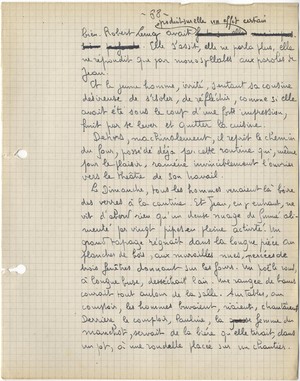 - 58 -
produit sur elle un effet certain
bien. Robert avait
. Elle s'assit, elle ne parla plus, elle
ne répondit que par monosyllabes aux paroles de
Jean.
Et le jeune homme, irrité, sentant sa cousine
désireuse de s'isoler, de réfléchir, comme si elle
avait été sous le coup d'une forte impression,
finit par se lever et quitter la cuisine.
Dehors, machinalement, il reprit le chemin
du four, possédé déjà par cette routine qui, même
pour le plaisir, ramène invinciblement l'ouvrier
vers le théâtre de son travail.
Le Dimanche, tous les hommes venaient là boire
des verres à la cantine. Et Jean, en y entrant, ne
vit d'abord rien qu'un dense nuage de fumée ali-
menté par vingt pipes en pleine activité. Un
grand tapage régnait dans la longue pièce au
plancher de bois, aux murailles nues, percées de
trois fenêtres donnant sur les fours. Un poêle seul,
à longue buse, desséchait l'air. Une rangée de bancs
courait tout autour de la salle. Aux tables, au
comptoir, les hommes buvaient, riaient, chantaient.
Derrière le comptoir, Pauline, la femme du
, servait de la bière qu'elle tirait, dans
un pot, à une rondelle placée sur un chantier.